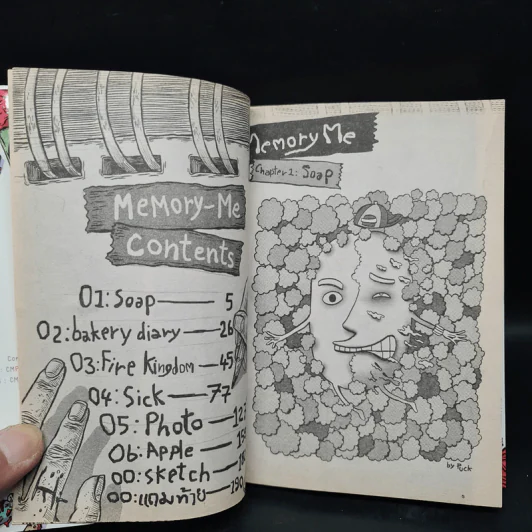 Memory-Me
Contents
01:Soap 5
02:bakery diary 26
03:Fire Kingdom 45
04:Sick 77
05:Photo
06:Apple
00:sketch
00:แถมท้าย 190
Memory Me
Chapter1: Soap
by Puck
5